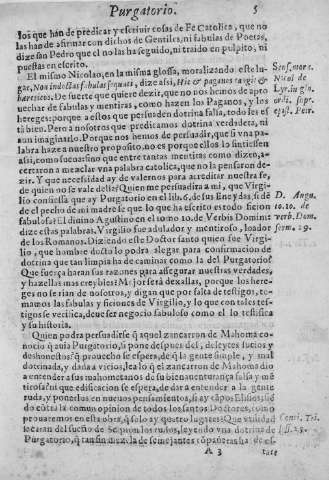 Purgatorio. 5
los que han de predicar y escriuir cosas de Fe Catolica, que no
las han de afirmar con dichos de Gentiles, ni fabulas de Poetas,
dize san Pedro que el no las ha seguido, ni traido en pulpito, ni
puestas en escrito.
El mismo Nicolao, en la misma glossa, moralizando este lu-
gar, Non indoctas fabulas sequuti, dize assi, Hic &
hæreticos. De suerte que quiere dezir, que no nos hemos de apro
uechar de fabulas y mentiras, como hazen los Paganos, y los
hereges: porque a estos que persuaden dotrina falsa, todo les es
tà bien. Pero a nosotros que predicamos dotrina verdadera, ni
aun imaginarlo. Porque nos hemos de persuadir, que si vna pa-
labra haze a nuestro proposito, no es porque ellos lo sintiessen
assi, como sueñan sino que entre tantas mentiras como dizen, a-
certaron a mezclar vna palabra catolica, que no la pensaron de-
zir. Y que necessidad ay de valernos para acreditar nuestra fe,
de quien no se vale della? Quien me persuadira a mi, que Virgi-
lio confiessa que ay Purgatorio en el lib. 6. de sus Eneydas, si è
del pecho de mi madre lo que lo que ha escrito es todo ficion
fabulosa? El diuino Agustino en el tomo 10. de Verbis Domini
dize estas palabras. Virgilio fue adulador y mentiroso, loador
de los Romanos. Diziendo este Doctor santo quien fue Virgi-
lio, que hombre docto lo podra alegar para confirmacion de
dotrina que tan limpia ha de caminar como la del Purgatorio?
Que fuerça haran sus razones para assegurar nuestras verdades,
y hazellas mas creybles? Mejor serà dexallas, porque los here-
ges no se rian de nosotros, y digan que por falta de testigos, to-
mamos las fabulas y ficiones de Virgilio, y lo que con tales tes-
tigos se verifica, deue ser negocio fabuloso como el lo testifica
y su historia.
Quien podra persuadirse q̃ aquel zancarron de Mahoma co-
nocio q̃ auia Purgatorio, si pone despues del, deleytes sucios y
deshonestos? q̃ prouecho se espera, de q̃ la gente simple, y mal
dotrinada, y dada a vicios, lea lo q̃ el zancarron de Mahoma dio
a entender a sus mahometanos de su bienauenturança falsa y mē
tirosa? ni que edificacion se espera, de dar a entender a la gente
ruda, y ponerlos en nueuos pensamientos, si ay cāpos Elisios; siē
do cōtra la comun opinion de todos los santos Doctores, como
prouaremos en esta obra,
del sueño de Scipion los rudos, leyendo vna dotrina de
Purgatorio, q̃ tan sin mezcla de semejantes
A 3 tate
D. Augu.
to. 10. de
verb. Dom.
serm. 29.